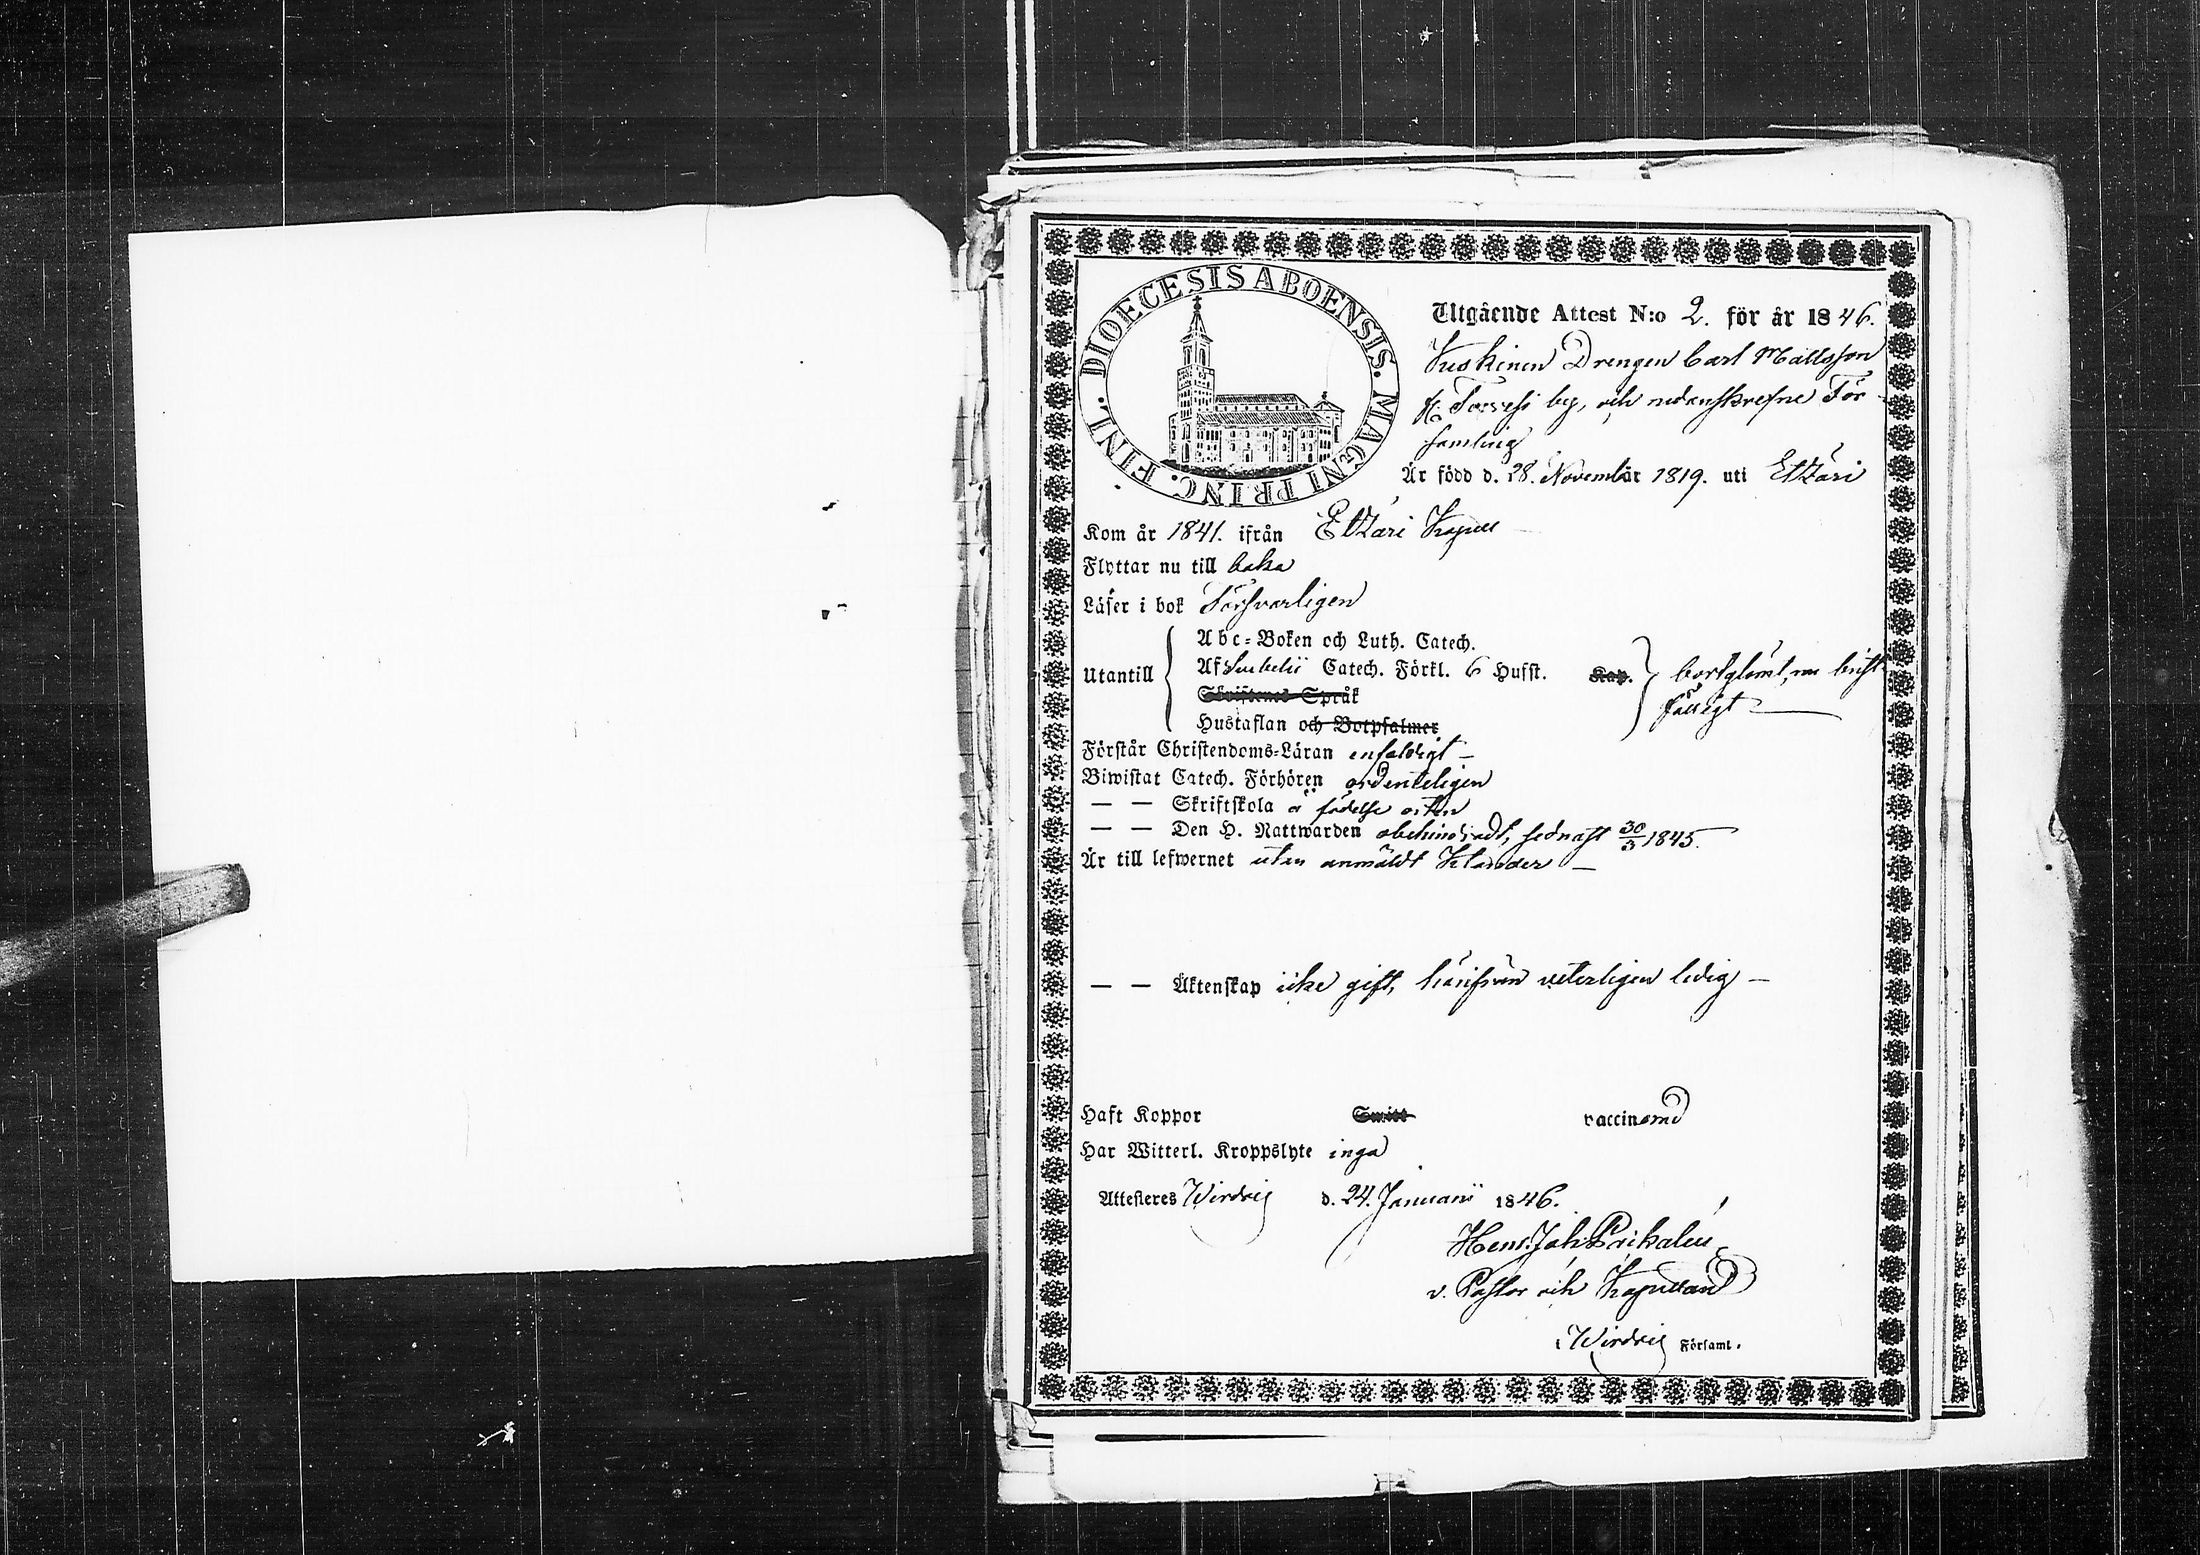 DIOECESIS ABOENSIS. MAGNI PRINC. FINL.
Utgående Attest N:o 2. för år 1846.
Drengen Carl Mattsson
fr. by, och nedanskrefne För
samling
Är född d. 28. November 1819. uti Etzäri
Kom år 1841. ifrån Etzäri Kapell
Flyttar nu till baka
Läser i bok Försvarligen
Abc-Boken och Luth. Catech.
Utantill Af Svebelii Catech. Förkl. 6 Hufst. Kap. bortglömt, nu brist
Skriftenes Språk fälligt
Hustaflan och Botpsalmer
Förstår Christendoms-Läran enfaldigt –
Biwistat Catech. Förhören ordenteligen
— — Skriftskola å födelse orten
— — Den H. Nattwarden obehindradt, sednast 30/3 1845.
Är till lefwernet utan anmäldt klander –
— — Äktenskap icke gift, härifrån veterligen ledig –
Haft Koppor Smitt vaccinerad
Har Witterl. Kroppslyte inga
Attesteres Wirdois d. 24. Januarii 1846.
Henr. Joh.
v. Pastor och Kapellan
i Wirdois Församl.